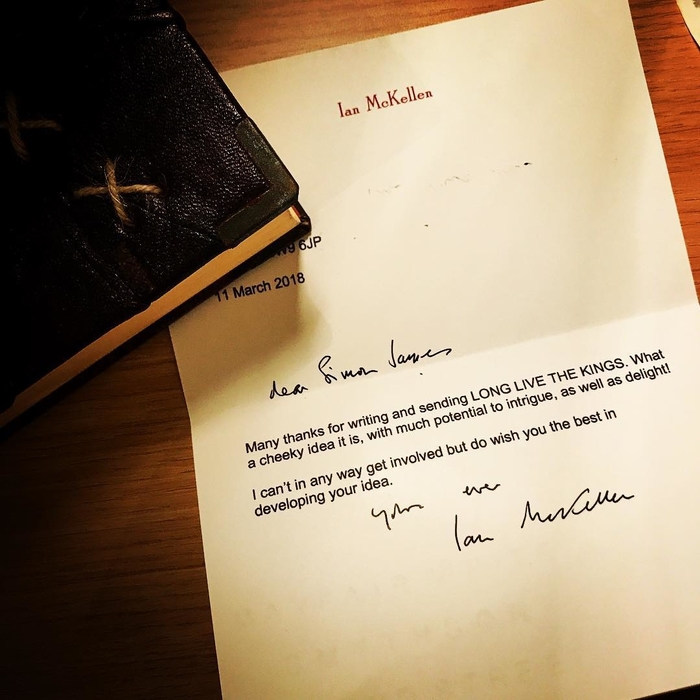 Ian McKellen
W9 6JP
11 March 2018
dear Simon James
Many thanks for writing and sending LONG LIVE THE KINGS. What
a cheeky idea it is, with much potential to intrigue, as well as delight!
I can't in any way get involved but do wish you the best in
developing your idea.
yours ever
Ian McKellen